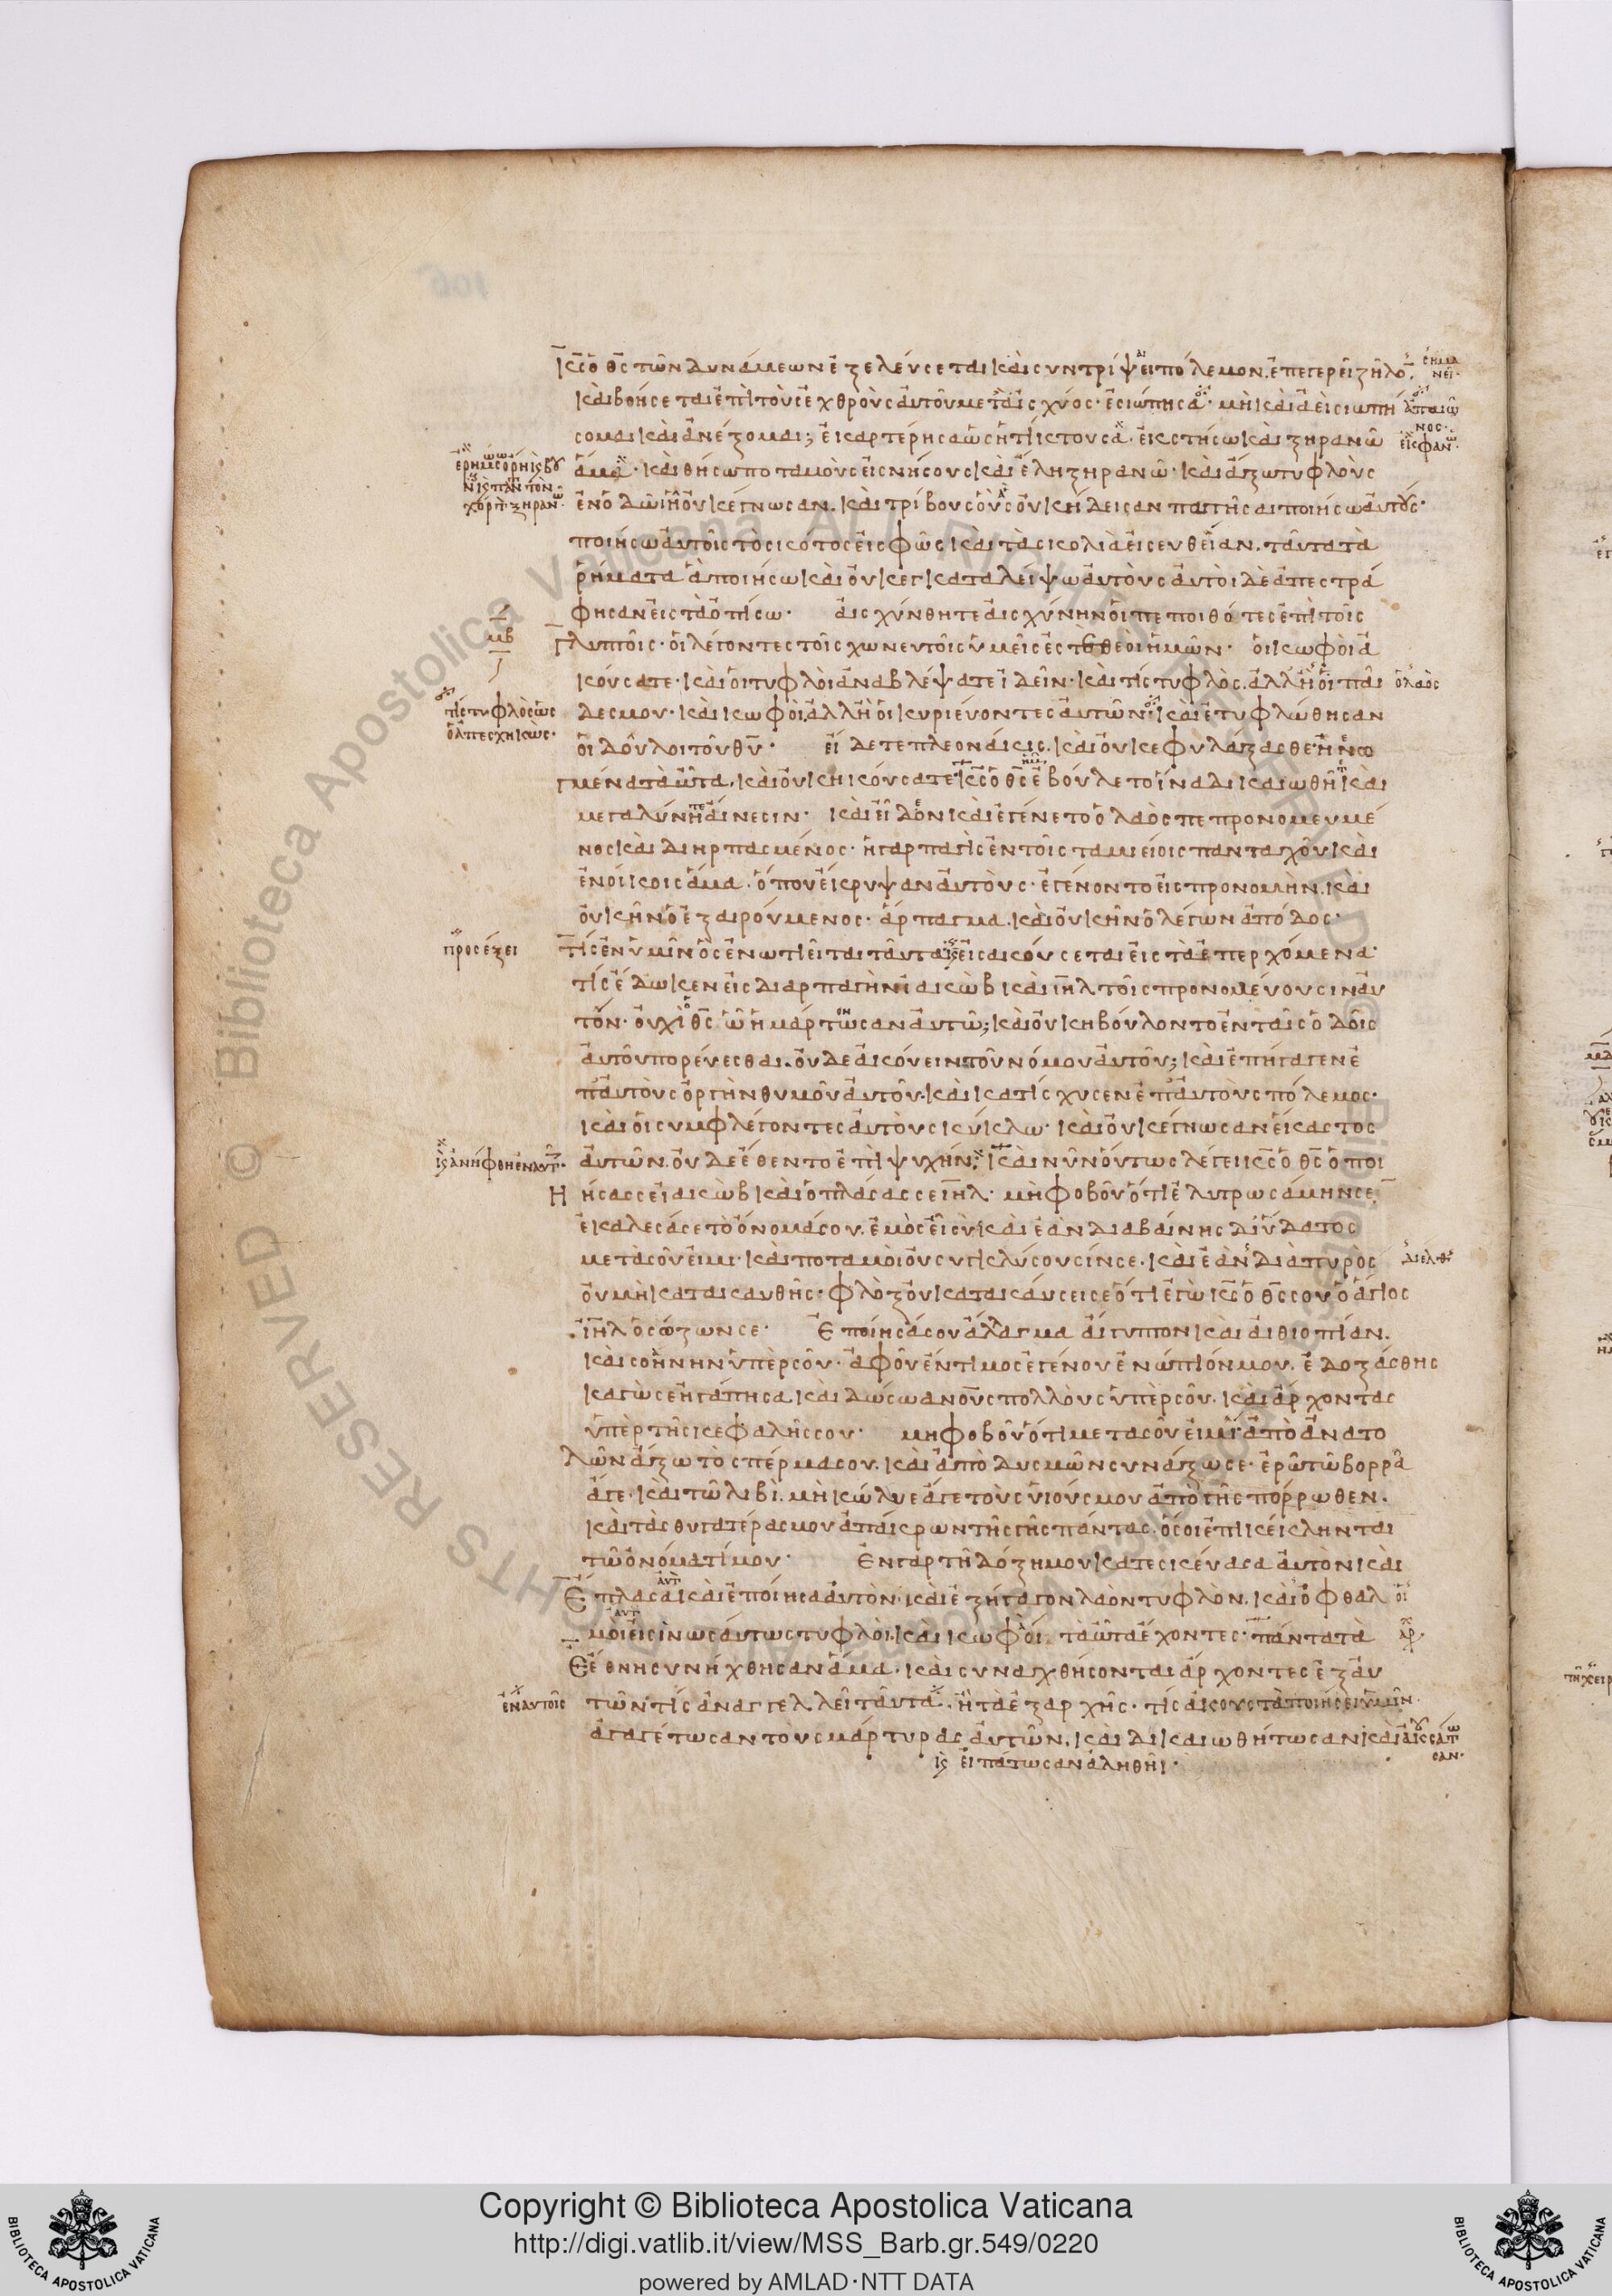 κ̅ς̅ ὁ θ̅ς̅ τῶν δυνάμεων ἐξελεύσεται καὶ συντρίψει πόλεμον. ἐπεγερεῖ ζῆλο̅·
καὶ βοήσεται ἐπὶ τοὺς ἐχθροὺς αὐτοῦ μετὰ ἰσχύος· ἐσιώπησα· μὴ καὶ ἀεὶ σιωπή
σομαι καὶ ἀνέξομαι; ἐκαρτέρησα ὡς ἡ τίκτουσα· ἐκστήσω καὶ ξηρανῶ
ἅμα· καὶ θήσω ποταμοὺς εἰς νήσους καὶ ἕλη ξηρανῶ· καὶ ἄξω τυφλοὺς
ἐν ὁδῶ ᾗ οὐκ ἔγνωσαν. καὶ τρίβους οὓς οὐκ ᾔδεισαν πατῆσαι ποιήσω αὐτούς·
ποιήσω αὐτοῖς τὸ σκότος εἰς φῶς καὶ τὰ σκολιὰ εἰς εὐθεῖαν. ταῦτα τὰ
ῥήματα ἃ ποιήσω καὶ οὐκ ἐγκαταλείψω αὐτοὺς αὐτοὶ δὲ ἀπεστρά
φησαν εἰς τὰ ὀπίσω· αἰσχύνθητε αἰσχύνην οἱ πεποιθότες ἐπὶ τοῖς
γλυπτοῖς· οἱ λέγοντες τοῖς χωνευτοῖς ὑμεῖς ἐστὲ θεοὶ ἡμῶν· οἱ κωφοὶ ἀ
κούσατε· καὶ οἱ τυφλοὶ ἀναβλέψατε ἰδεῖν· καὶ τίς τυφλὸς. ἀλλ' ἢ οἱ παῖ
δες μου· καὶ κωφοὶ. ἀλλ' ἢ οἱ κυριεύοντες αὐτῶν· καὶ ἐτυφλώθησαν
οἱ δοῦλοι τοῦ θ̅υ̅· εἴδετε πλεονάκις. καὶ οὐκ ἐφυλάξασθε· ἠνεω
γμένα τὰ ὦτα, καὶ οὐκ ἠκούσατε· κ̅ς̅ ὁ θ̅ς̅ ἐβούλετο ἵνα δικαιωθῆ καὶ
μεγαλύνη αἴνεσιν· καὶ εἶδον καὶ ἐγένετο ὁ λαὸς πεπρονομευμέ
νος καὶ διηρπασμένος· ἡ γὰρ παγὶς ἐν τοῖς ταμιείοις πανταχοῦ καὶ
ἐν οἴκοις ἅμα. ὅπου ἔκρυψαν αὐτοὺς· ἐγένοντο εἰς προνομὴν. καὶ
οὐκ ἦν ὁ ἐξαιρούμενος· ἅρπαγμα. καὶ οὐκ ἦν ὁ λέγων ἀπόδος·
τίς ἐν ὑμῖν ὃς ἐνωτιεῖται ταῦτα εἰσακούσεται εἰς τὰ ἐπερχόμενα·
τίς ἔδωκεν εἰς διαρπαγὴν ἰακὼβ καὶ ι̅η̅λ̅ τοῖς προνομεύουσιν αὐ
τόν· οὐχὶ ὁ θ̅ς̅ ᾧ ἡμάρτωσαν αὐτῶ; καὶ οὐκ ἠβούλοντο ἐν ταῖς ὁδοῖς
αὐτοῦ πορεύεσθαι. οὐδὲ ἀκούειν τοῦ νόμου αὐτοῦ; καὶ ἐπήγαγεν ἐ
π' αὐτοὺς ὀργὴν θυμοῦ αὐτοῦ. καὶ κατίσχυσεν ἐπ' αὐτοὺς πόλεμος·
καὶ οἱ συμφλέγοντες αὐτοὺς κύκλω· καὶ οὐκ ἔγνωσαν ἕκαστος
αὐτῶν. οὐδὲ ἔθεντο ἐπὶ ψυχήν; καὶ νῦν οὕτως λέγει κ̅ς̅ ὁ θ̅ς̅ ὁ ποι
ήσας σε ἰακὼβ καὶ ὁ πλάσας σε ι̅η̅λ̅· μὴ φοβοῦ ὅτι ἐλυτρωσάμην σε
ἐκάλεσά σε τὸ ὄνομά σου. ἐμὸς εἶ σὺ καὶ ἐὰν διαβαίνης δι' ὕδατος
μετὰ σοῦ εἰμι· καὶ ποταμοὶ οὐ συγκλύσουσίν σε. καὶ ἐὰν διὰ πυρὸς
οὐ μὴ κατακαυθῆς· φλὸξ οὐ κατακαύσει σε ὅτι ἐγὼ κ̅ς̅ ὁ θ̅ς̅ σου ὁ ἅγιος
ι̅η̅λ̅ ὁ σώζων σε· Ἐποίησά σου ἄλλαγμα αἴγυπτον καὶ αἰθιοπίαν.
καὶ σοήνην ὑπὲρ σοῦ· ἀφ' οὗ ἔντιμος ἐγένου ἐνώπιόν μου. ἐδοξάσθης
καγώ σε ἠγάπησα. καὶ δώσω α̅ν̅ο̅υ̅ς πολλοὺς ὑπὲρ σοῦ. καὶ ἄρχοντας
ὑπὲρ τῆς κεφαλῆς σου· μὴ φοβοῦ ὅτι μετὰ σοῦ εἰμὶ ἀπὸ ἀνατο
λῶν ἄξω τὸ σπέρμα σου. καὶ ἀπὸ δυσμῶν συνάξω σε· ἐρῶ τῶ βορρᾶ
ἄγε· καὶ τῶ λιβὶ. μὴ κώλυε ἄγε τοὺς υἱούς μου ἀπὸ τῆς πόρρωθεν.
καὶ τὰς θυγατέρας μου ἀπ' ἄκρων τῆς γῆς πάντας. ὅσοι ἐπικέκληνται
τῶ ὀνόματί μου· Ἐν γὰρ τῆ δόξη μου κατεσκεύασα αὐτὸν καὶ
Ἔπλασα καὶ ἐποίησα αὐτὸν· καὶ ἐξήγαγον λαὸν τυφλὸν. καὶ ὀφθαλ
μοί εἰσὶν ὡσαύτως τυφλοὶ. καὶ κωφοὶ τὰ ὦτα ἔχοντες· πάντα τὰ
ἔθνη συνήχθησαν ἅμα. καὶ συναχθήσονται ἄρχοντες ἐξ αὐ
τῶν τίς ἀναγγελλεῖ ταῦτα. ἢ τὰ ἐξ ἀρχῆς· τίς ἀκουστὰ ποιήσει ὑμῖν·
ἀγαγέτωσαν τοὺς μάρτυρας αὐτῶν. καὶ δικαιωθήτωσαν καὶ
εἰπάτωσαν ἀληθῆ·
σημα
νεῖ·
ὁ λαός
προσέξει
μ̅β̅
ἐν αὐτοῖς
Copyright © Biblioteca Apostolica Vaticana
http://digi.vatlib.it/view/MSS_Barb.gr.549/0220
powered by AMLAD·NTT DATA
BIBLIOTECA APOSTOLICA VATICANA
BIBLIOTECA APOSTOLICA VATICANA